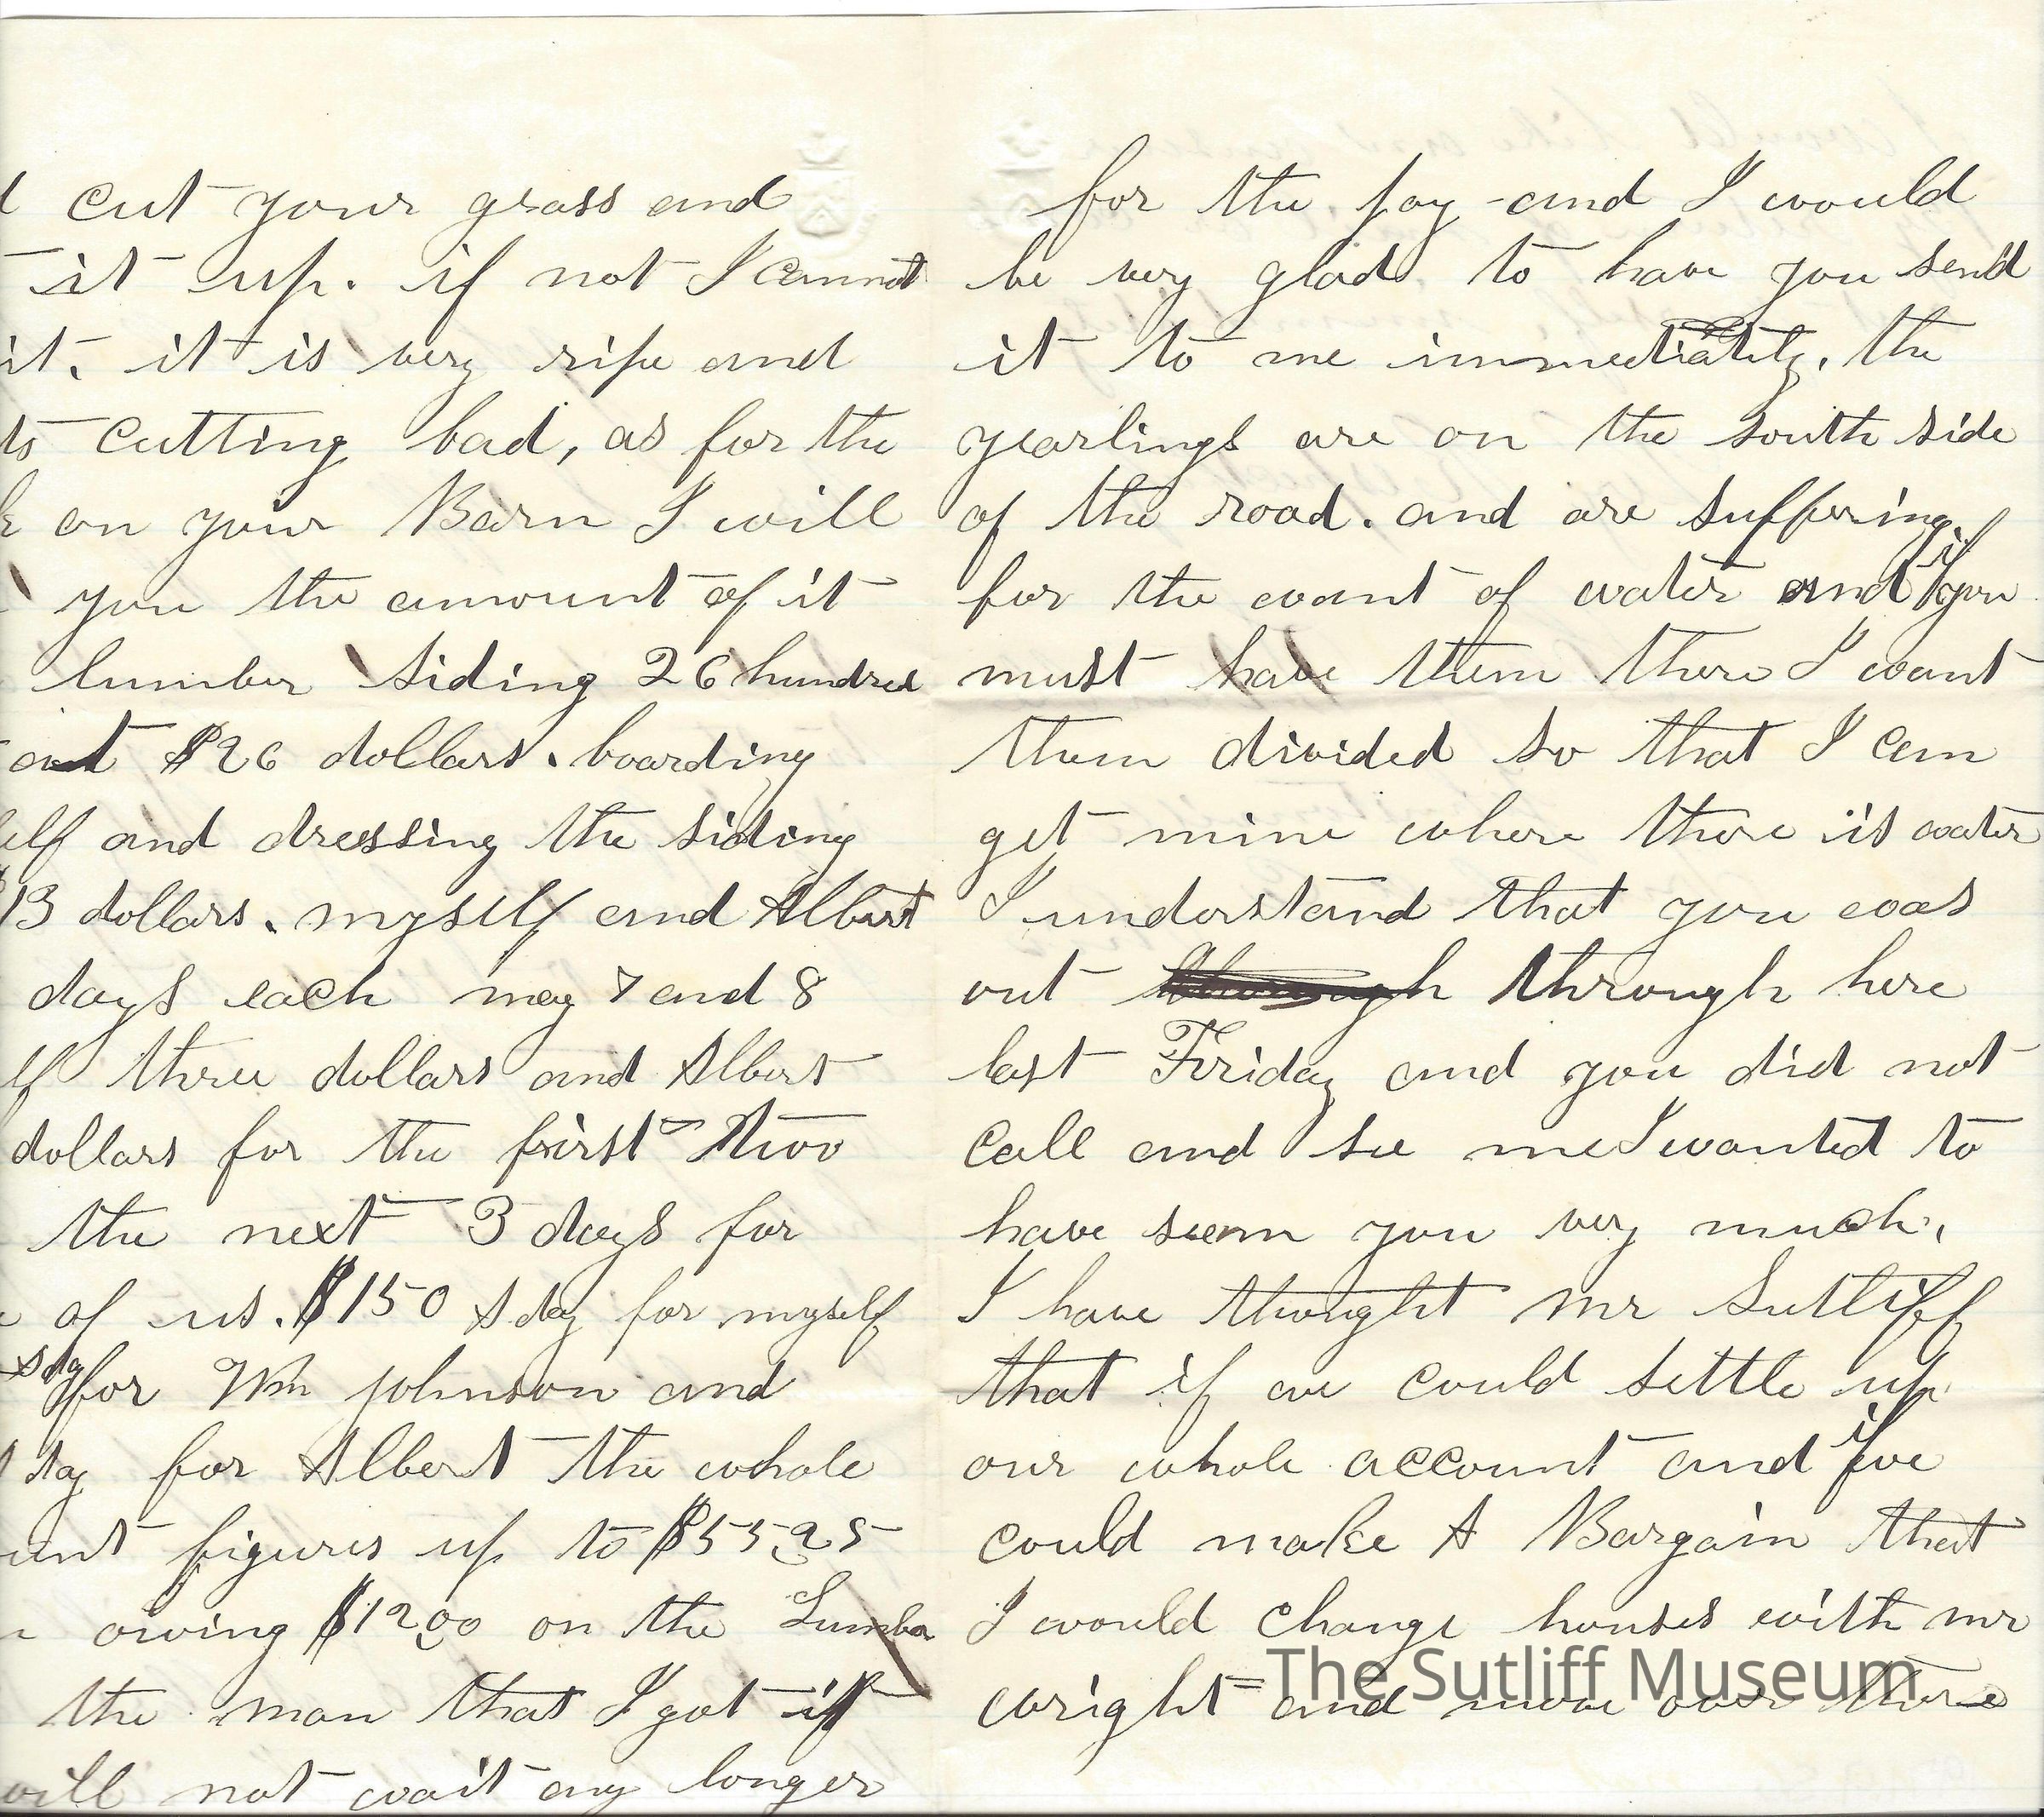 cut your grass and
it up. if not I cannot
it. it is very ripe and
cutting bad, as for the
on your Barn I will
you the amount of it
lumber siding 26 hundred
$26 dollars. boarding
and dressing the siding
13 dollars. myself and Albert
days each may 7 and 8
three dollars and Albert
dollars for the first two
the next 3 days for
of us. $150 A day for myself
A day for Wm johnson and
day for Albert the whole
figures up to $55 25
owing $12 00 on the Lumber
the man that I got it
will not wait any longer
for the pay and I would
be very glad to have you send
it to me immediately. the
yearlings are on the south side
of the road. and are suffering.
for the want of water and if you
must have them there I want
them divided so that I can
get mine where there is water
I understand that you was
out through here
last Friday and you did not
call and see me I wanted to
have seen you very much.
I have thought mr Sutliff
that if we could settle up
our whole account and if we
could make A Bargain that
I would change houses with mr
wright and move over there
The Sutliff Museum